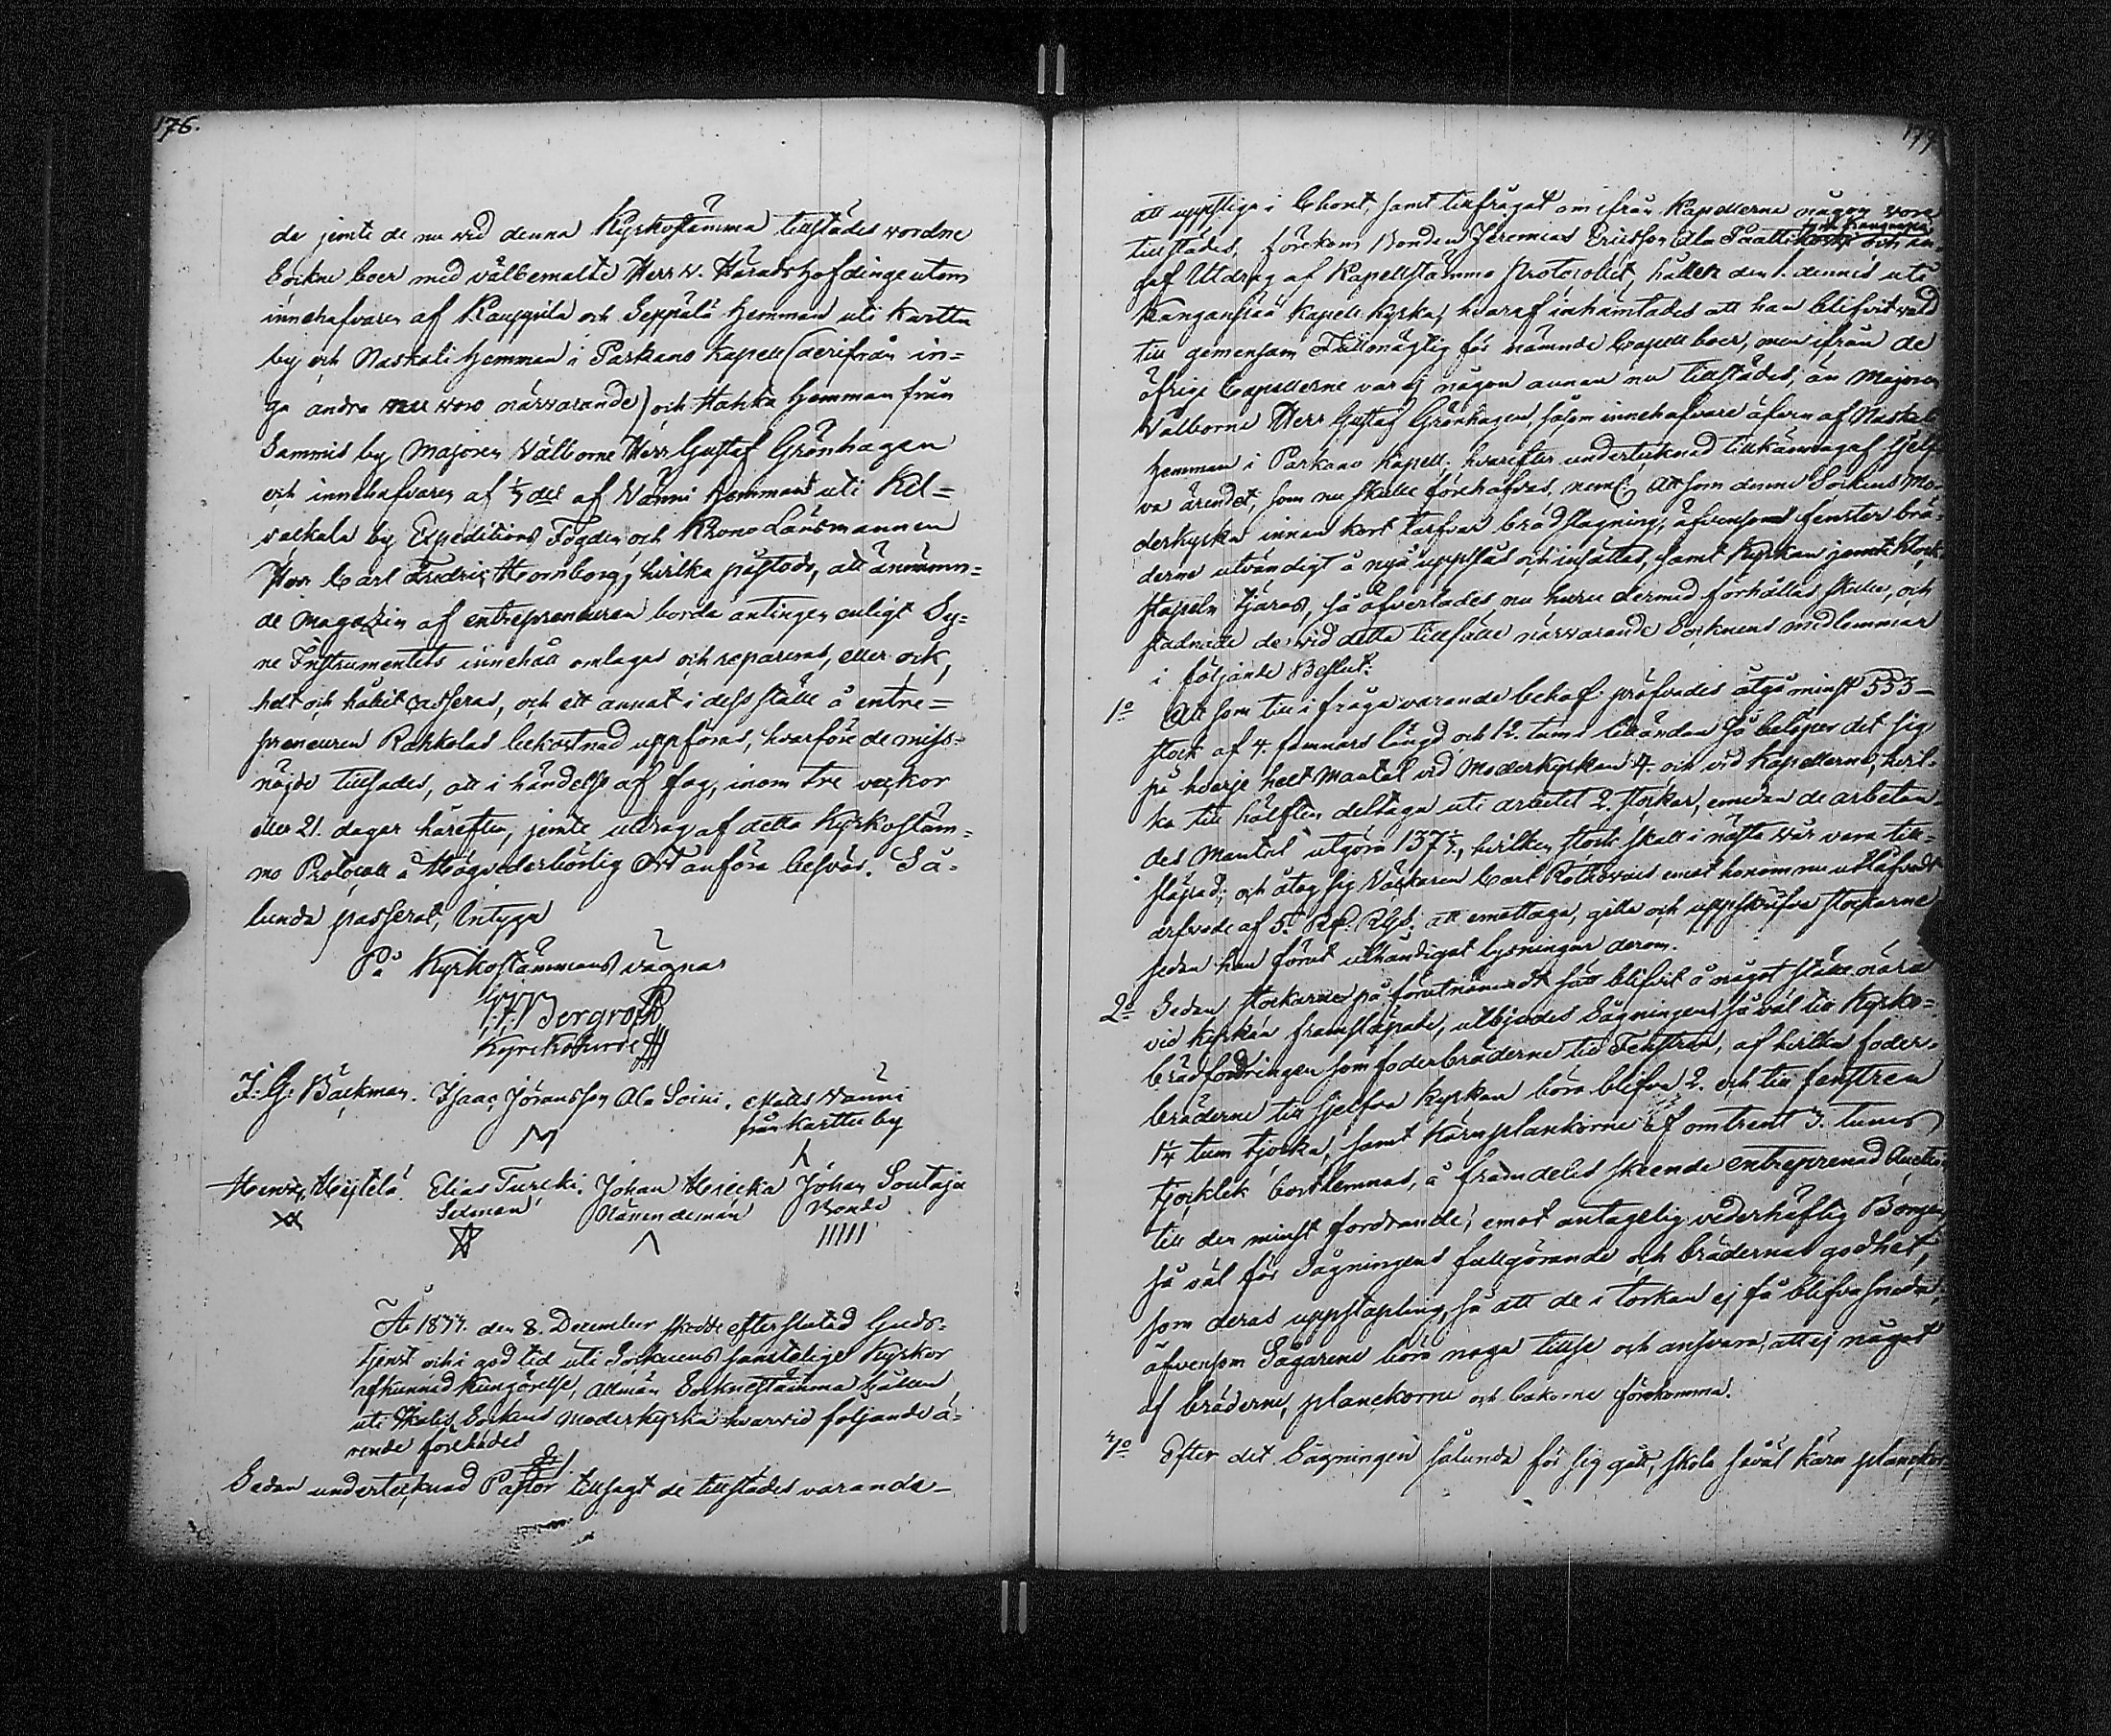 176.
de jemte de nu wid denna Kyrkostämma tillstädes wordne
Sockne boer med välbemälte Herr v. Häradshöfdinge utom
innehafvaren af Kauppila och Seppälä Hemman uti Karttu
by och Naskali Hemman i Parkano Kapell (derifrån in-
ga andra nu woro närwarande) och Hahka Hemman från
Sammis by Majoren Wälborne Herr Gustaf Grönhagen
och innehafvaren af del af Wänni Hemman uti Kil-
vackala by Expeditions Fogden och Krono Länsmannen
Herr Carl Fredric Hornborg, hvilka påstodo, att änämn-
de Magazin af entrepreneuren borde antingen enligt Sy-
ne Instrumentets innehåll omlagas och reparera, eller ock,
helt och hållit casseras, och ett annat i dess ställe å entre-
preneuren Rahkolas bekostnad uppföras, hvarföre de miss-
nöjde tillsades, att i händelse af fog, inom tre veckor
eller 21. dagar härefter, jemte utdrag af detta Kyrkostäm-
mo Protocoll å Högvederbörlig Ort anföra besvär. Så-
lunda passerat, Intyga
På Kyrkostämmans vägnar
Bergroth
Kyrckoherde
J: G: Bäckman. Isaac Jöransson Ala Soini. Matts Wänni
från Karttu by
Henric Heijtelä. Elias Turcki. Johan Heiecka Johan Soutaja
Sexman Nämndeman Bonde
Åhr 1833. den 8. December skedde efter slutad Guds-
tjenst och i god tid uti Socknens samtelige Kyrkor
afkunnad Kungörelse, Allmän Sockne Stämma hållen
uti Ikalis Sockens Moderkyrka hvarvid följande ä-
rende förehades
Sedan undertecknad Pastor tillsagt de tillstädes varande
177
att uppstiga i Choret, samt tillfrågat om ifrån Kapellerne någon vore
tillstädes, förekom Bonden Jeremias Ericsson Ala Taattikoski och in-
från Kangansuå
gaf Utdrag af Kapellstämmo Protocollet, hållen den 1. dennes uti
Kanganså Kapell Kyrka, hvaraf inhämtades att han blifvit vald
till gemensam Fullmägtig för nämnde Capell boer, men ifrån de
öfrige Capellerne var ej någon annan nu tillstädes, än Majoren
Välborne Herr Gustaf Grönhagen, såsom innehafvare äfven af Naskali
Hemman i Parkano Kapell; hvarefter undertecknad tillkännagaf sjelf-
va ärendet, som nu skulle förehafvas, neml: Att som denne Sockens Mo-
derkyrka innan kort tarfvar brädslagning, äfvensom fenster brä-
derne utvändigt å nyo uppslås och insättas, samt Kyrkan jemte Klock-
stapeln tjäras, så öfverlades nu huru dermed förhållas skulle, och
stadnade de vid detta tillfälle närwarande Socknens medlemmar
i följande Beslut:
1o Att som till i fråga varande behof pröfvades åtgå minst 553
stock af 4. famnars längd och 12. tums lilländan så belöper det sig
på hvarje helt Mantal vid Moderkyrkan 4. och vid Kapellerne, hvil-
ka till hälften deltaga uti arbetet 2. stockar, emedan de arbetan-
des Mantal utgöra 137, hvilken stock skall i nästa vår vara till-
släpad; och åtog sig Wäckaren Carl Rothovius emot honom nu utlåfvadt
arfvode af 5. att emottaga, gilla och uppskrifva stockarne
sedan han förut utkändigat lysningar derom.
2o Sedan stockarne på förutnämndt sätt blifvit å något ställe nära
vid Kyrkan framsläpade, utbjudes Sågningen så väl till Kyrko-
brädfodringen som foderbräderne till Fenstren, af hvilka foder-
bräderne till sjelfva Kyrkan böra blifva 2. och till fenstren
1¼ tum tjocka, samt Kärnplankorne af omtrent 3. tums
tjocklek bortlemnas, å framdeles skeende entreprenad Auction
till den minst fordrande, emot antagelig vederhäftig Borgen
så väl för Sågningens fullgörande och brädernas godhet,
som deras uppstapling, så att de i torkan ej få blifva sneda,
äfvensom Sågarene böra noga tillse och ansvara, att ej något
af bräderne, planckorne och bakorne förekomma.
Efter det Sågningen sålunda för sig gått, skola såväl Kärn planckor-